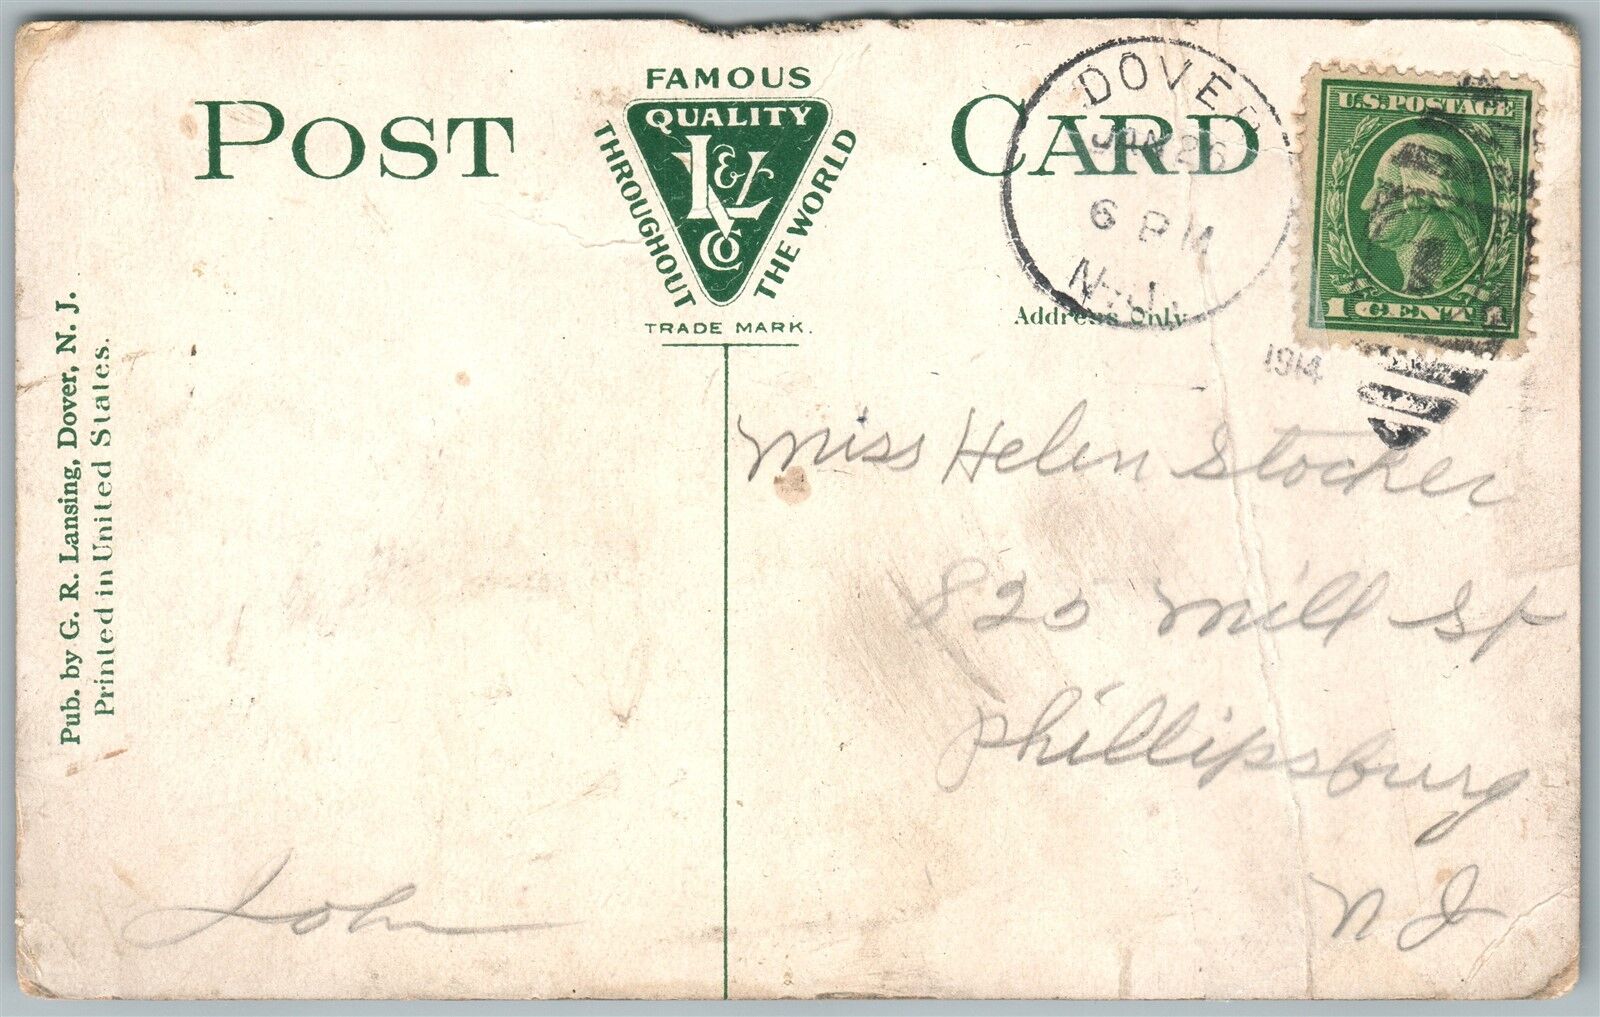 POST CARD
FAMOUS
QUALITY
THROUGHOUT
THE WORLD
L & L
Co
TRADE MARK.
DOVER
JAN 26
6 PM
N.J.
1914
U.S. POSTAGE
1 CENT 1
Address Only
Pub. by G. R. Lansing, Dover, N. J.
Printed in United States.
Miss Helen Stocker
825 Mill St
Phillipsburg
N J
John